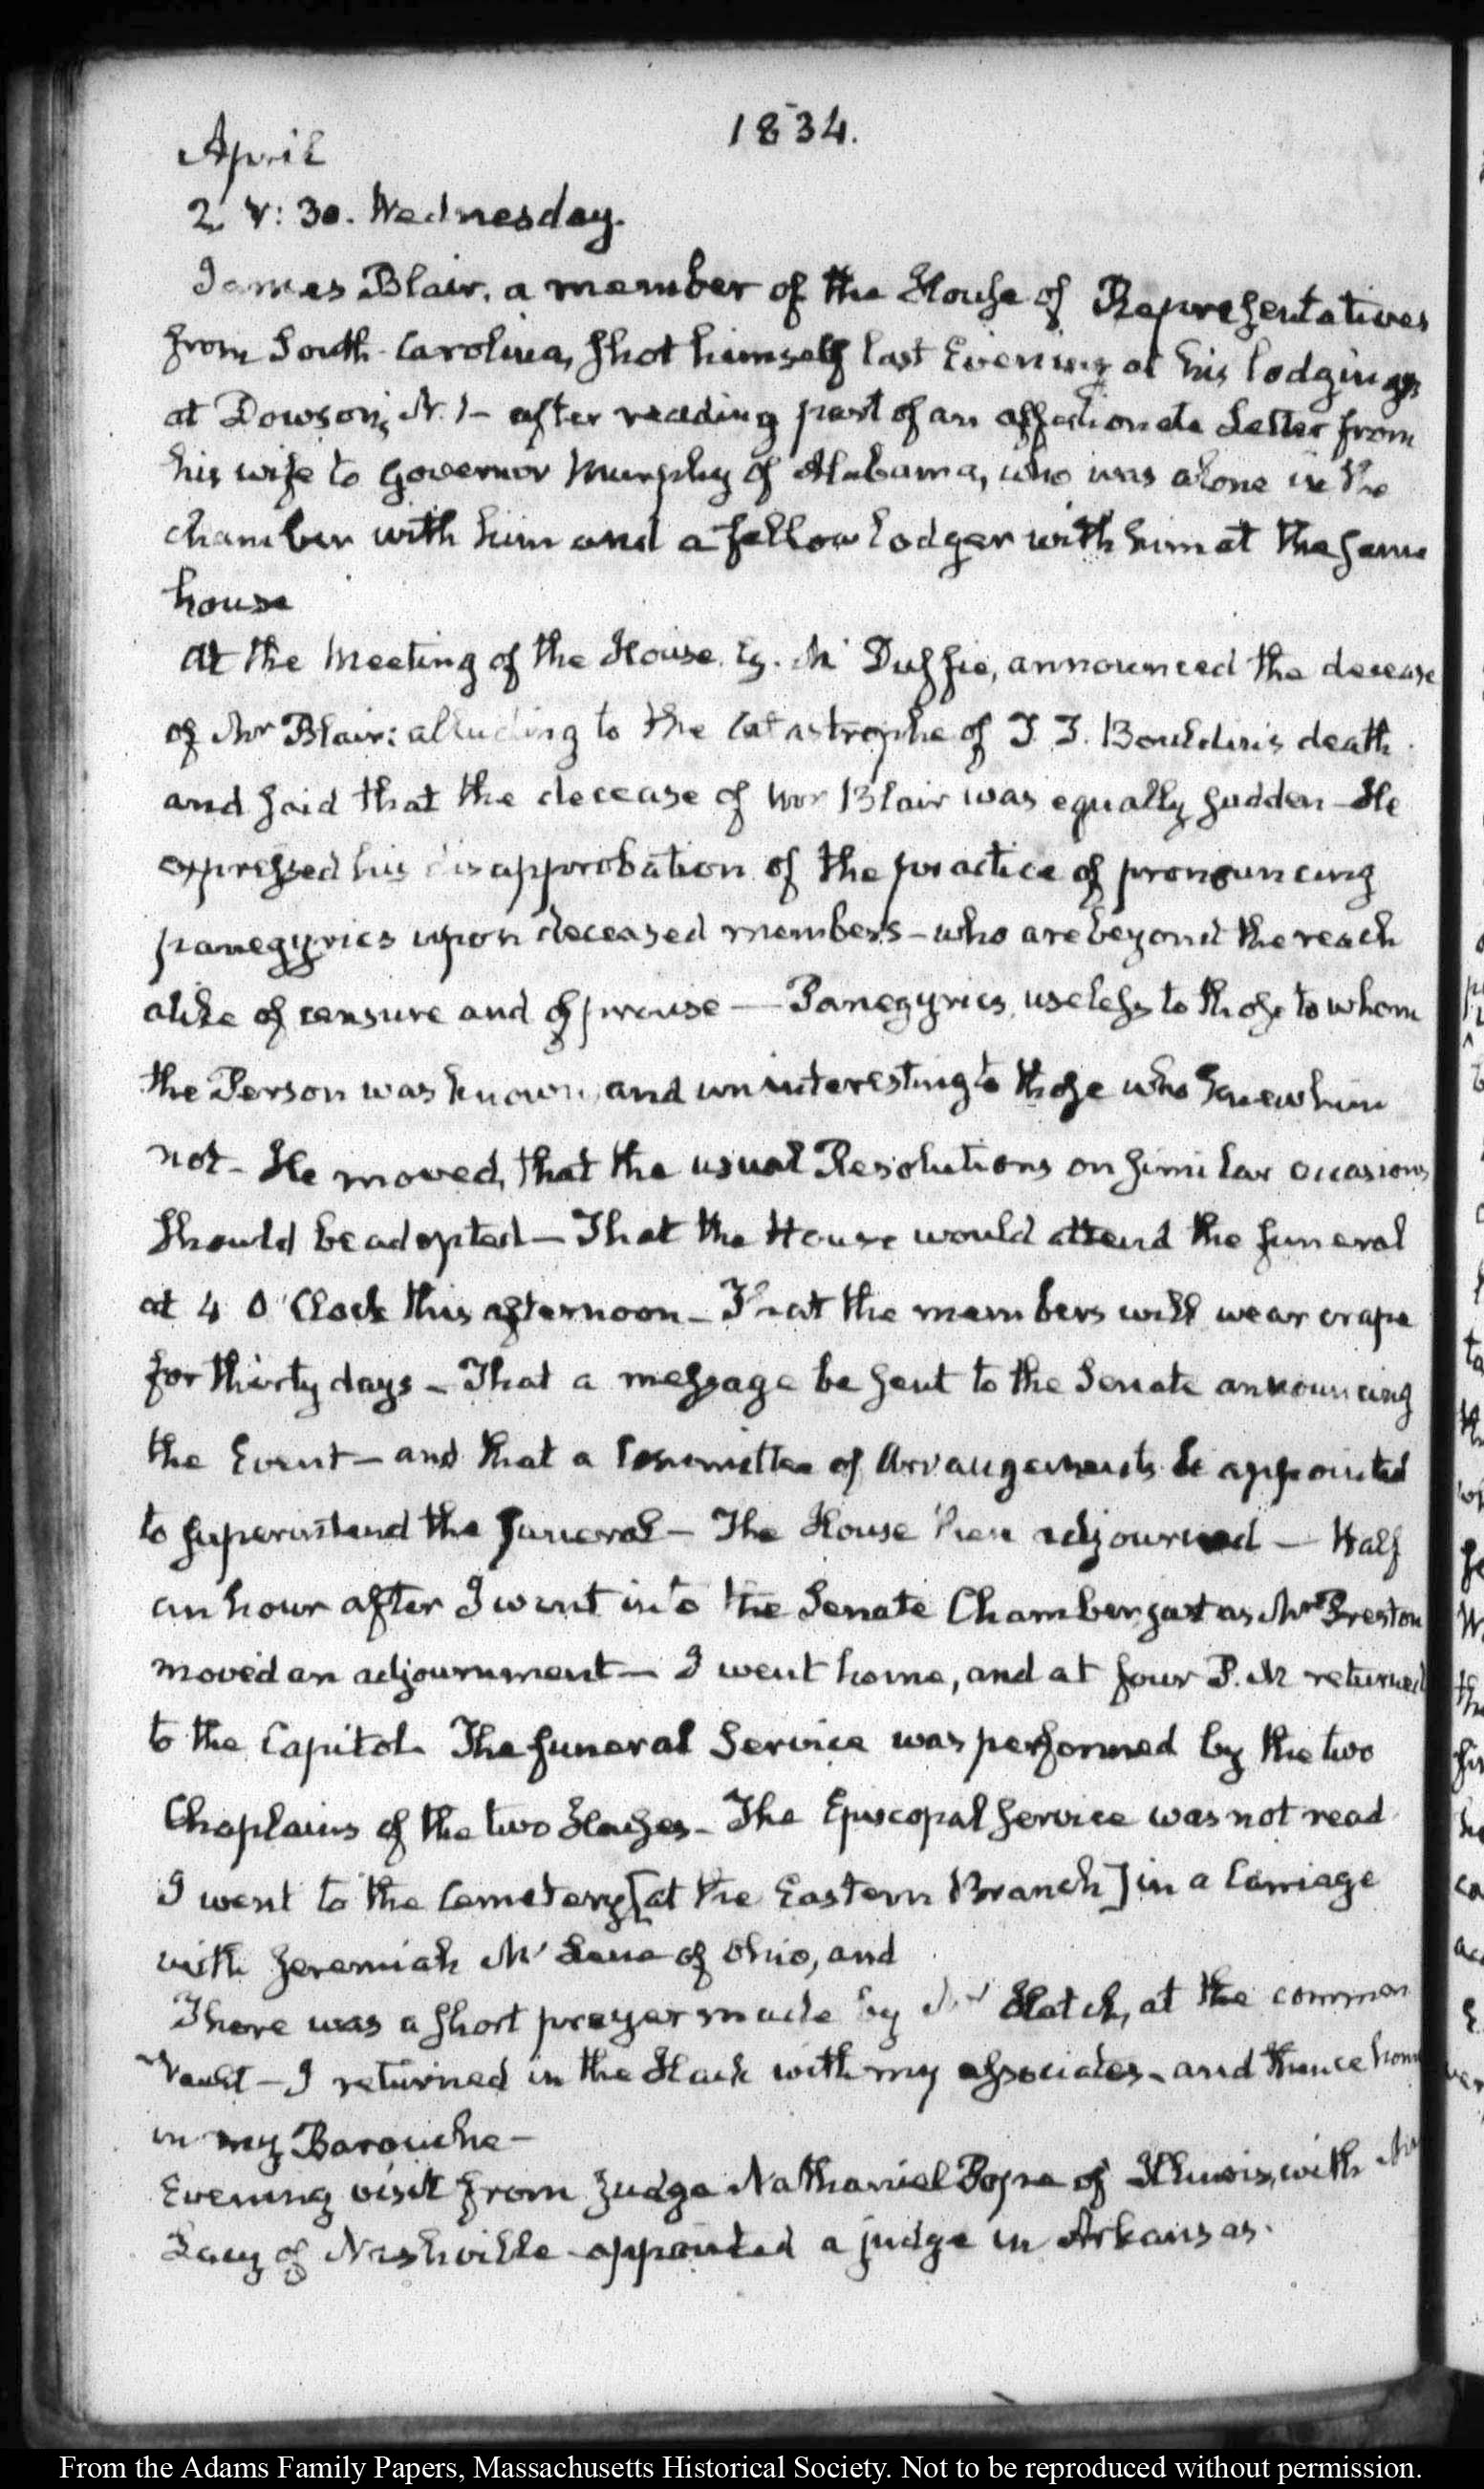 1834.
April
2. V: 30. Wednesday.
James Blair, a member of the House of Representatives
from South-Carolina, shot himself last Evening at his lodgings
at Dowson's N. 1 – after reading part of an affectionate Letter from
his wife to Governor Murphy of Alabama, who was alone in the
chamber with him and a fellow lodger with him at the same
house
At the Meeting of the House, G. McDuffie, announced the decease
of Mr Blair: alluding to the catastrophe of T T. Bouldin's death
and said that the decease of Mr Blair was equally sudden – He
expressed his disapprobation of the practice of pronouncing
panegyrics upon deceased members – who are beyond the reach
alike of censure and of praise — Panegyrics, useless to those to whom
the Person was known, and uninteresting to those who knew him
not – He moved, that the usual Resolutions on similar occasions
should be adopted – That the House would attend the funeral
at 4 O'Clock this afternoon – That the members will wear crape
for thirty days – That a message be sent to the Senate announcing
the Event – and that a Committee of Arrangements be appointed
to superintend the funeral – The House then adjourned — Half
an hour after I went into the Senate Chamber just as Mr Preston
moved an adjournment – I went home, and at four P. M returned
to the Capitol. The funeral Service was performed by the two
Chaplains of the two Houses – The Episcopal Service was not read
I went to the Cemetery [at the Eastern Branch] in a Carriage
with Jeremiah McLene of Ohio, and
There was a short prayer made by Mr Hatch, at the common
Vault – I returned in the Hack with my associates – and thence home
in my Barouche –
Evening visit from Judge Nathaniel Pope of Illinois, with Mr
Lacy of Nashville appointed a judge in Arkansas.
From the Adams Family Papers, Massachusetts Historical Society. Not to be reproduced without permission.